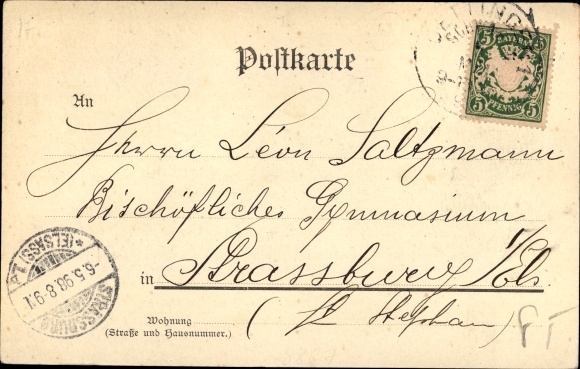 Postkarte
5 BAYERN 5
5 PFENNIG 5
An
Herrn Léon Saltzmann
Bischöfliches Gymnasium
in Strassburg i/Els.
(St Stephan)
Wohnung
(Straße und Hausnummer.)
STRASSBURG
-6.5.98.8-9V.
* (ELSASS) 1.
PT